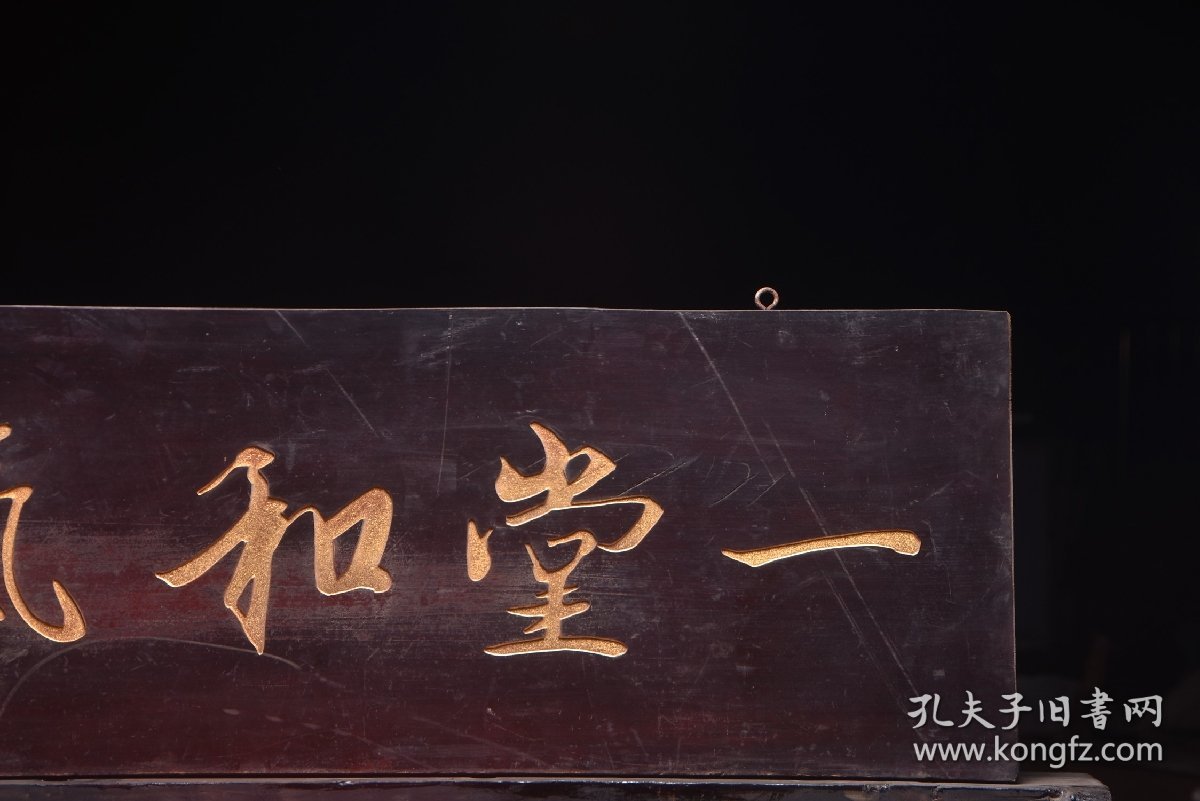 一堂和氣
孔夫子旧書网
www.kongfz.com